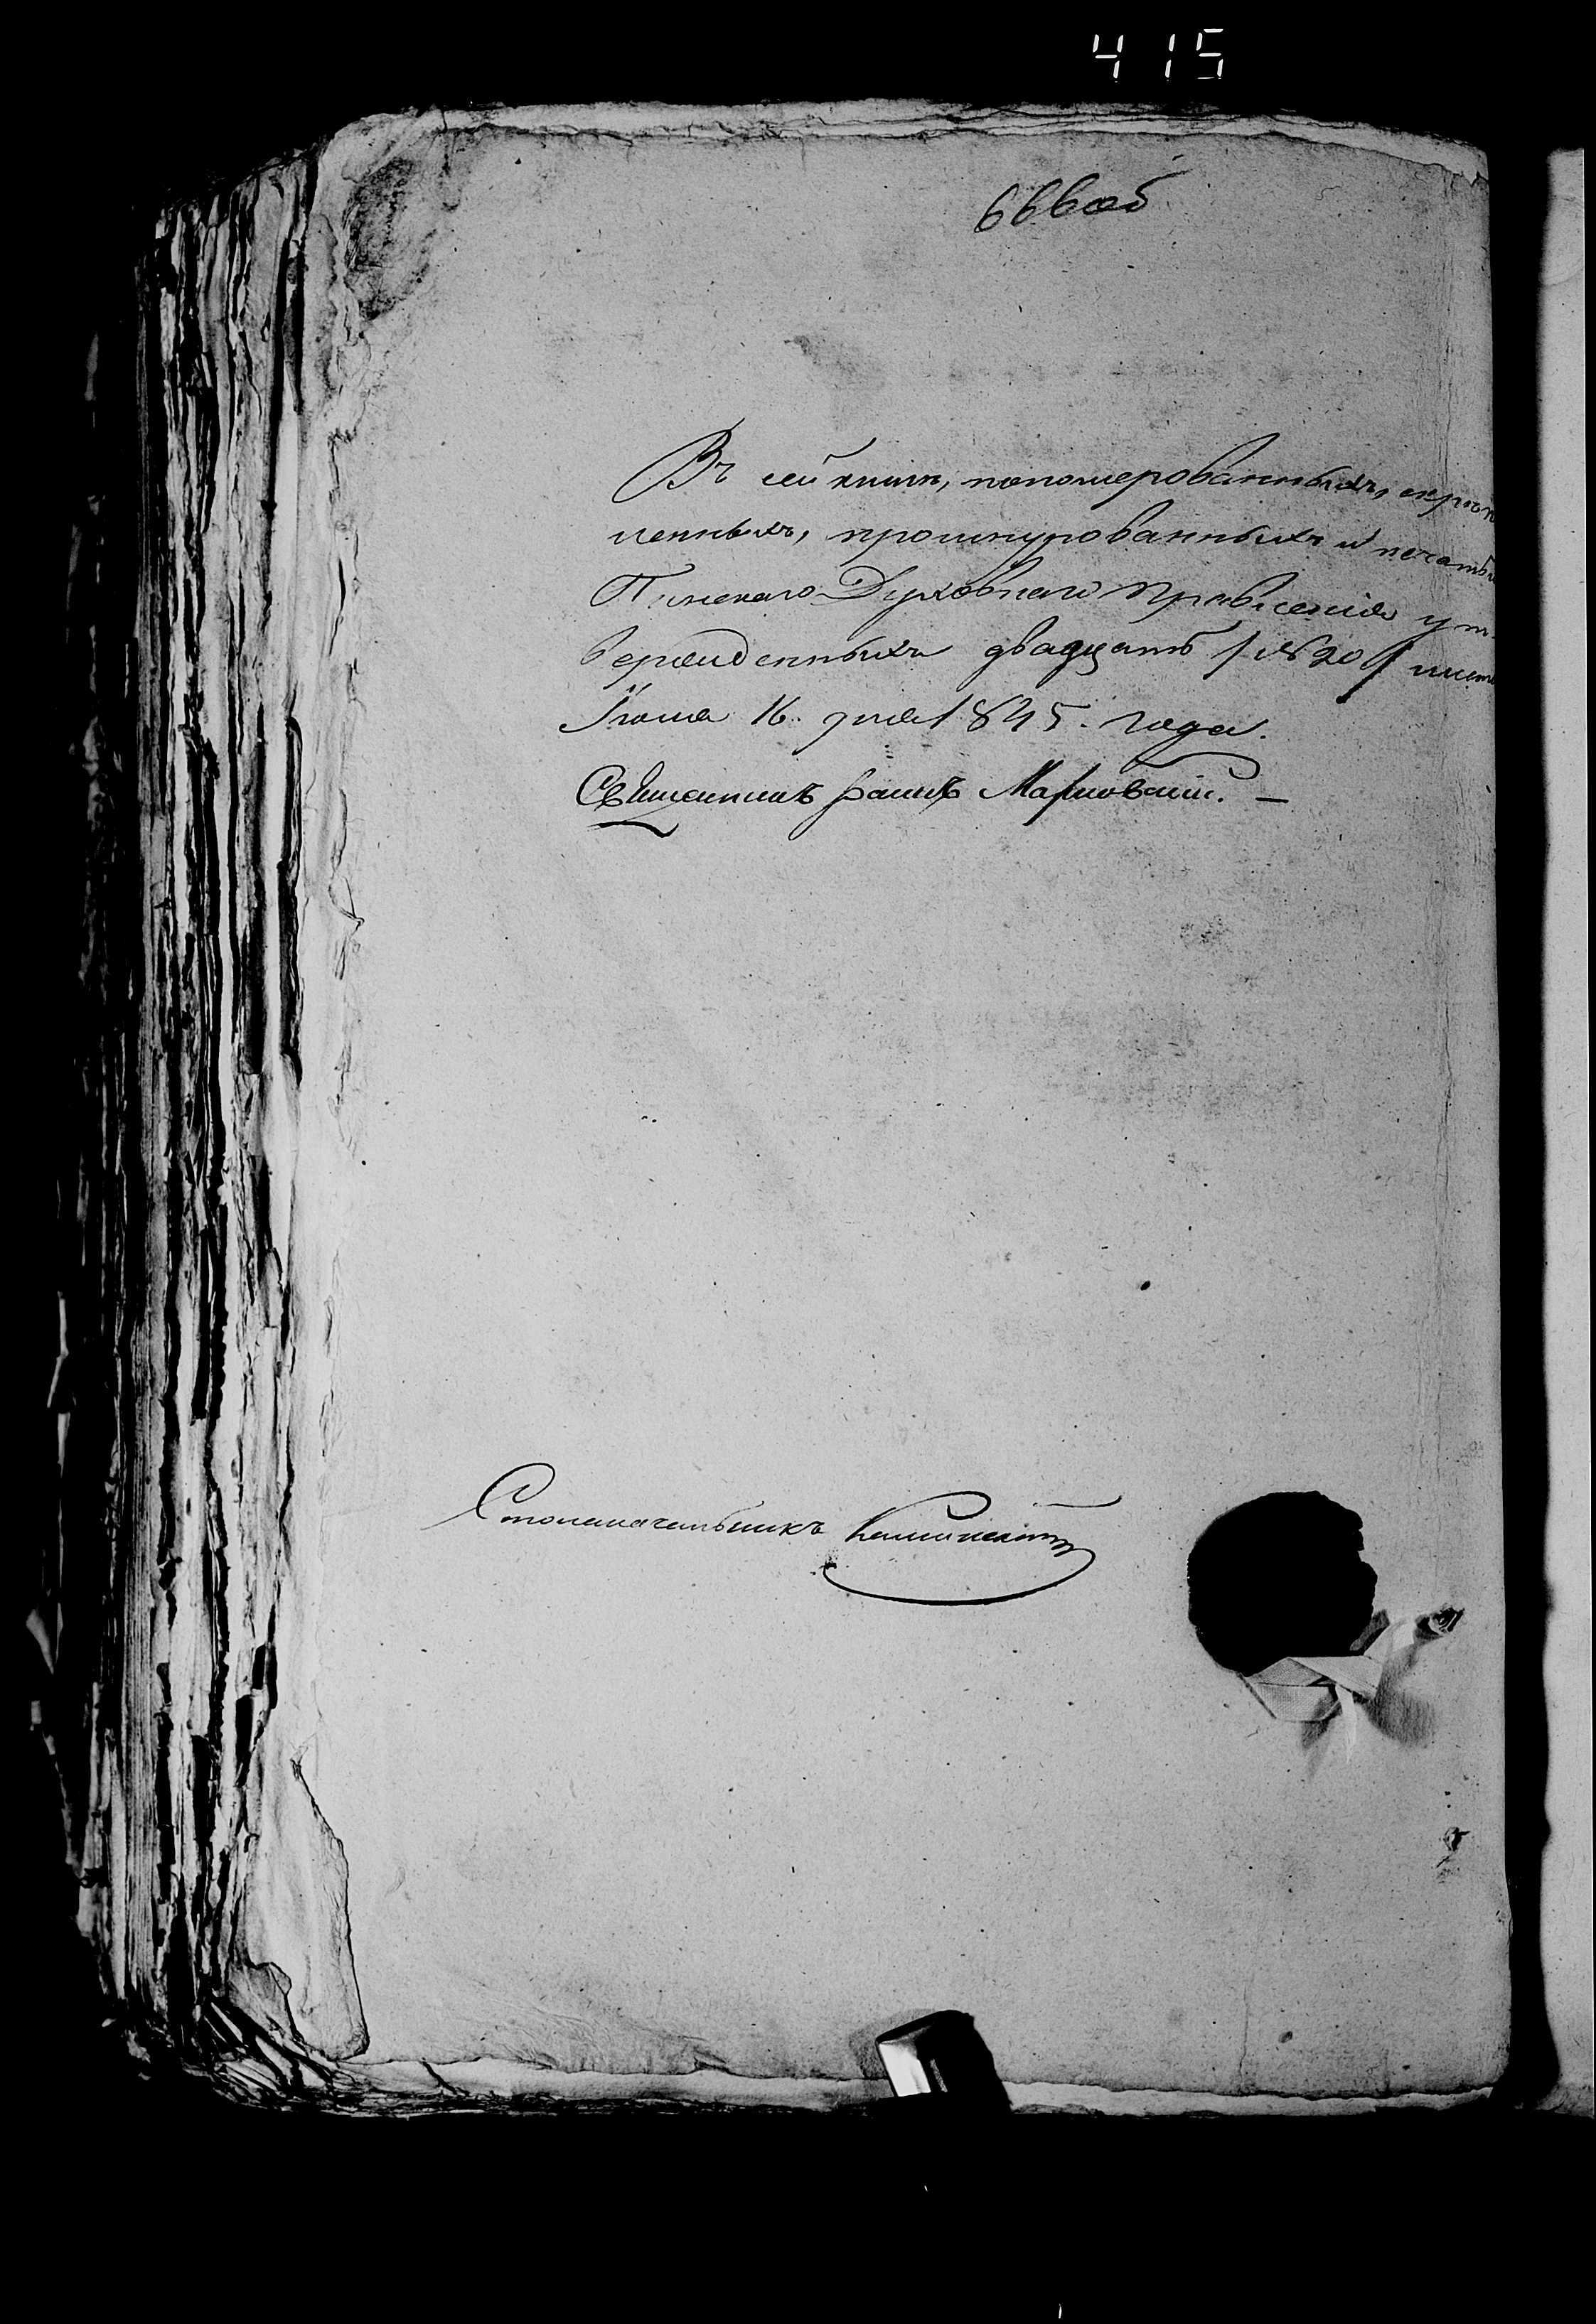 415
666 об
Въ сей книгѣ, пономерованныхъ, скрѣп
ленныхъ, прошнурованныхъ и печатью
Пинскаго Духовнаго Правленія ут-
вержденныхъ двадцать /№ 20/ листовъ
Іюня 16. дня 1845. года.
Священникъ Марковскій. —
Столоначальникъ